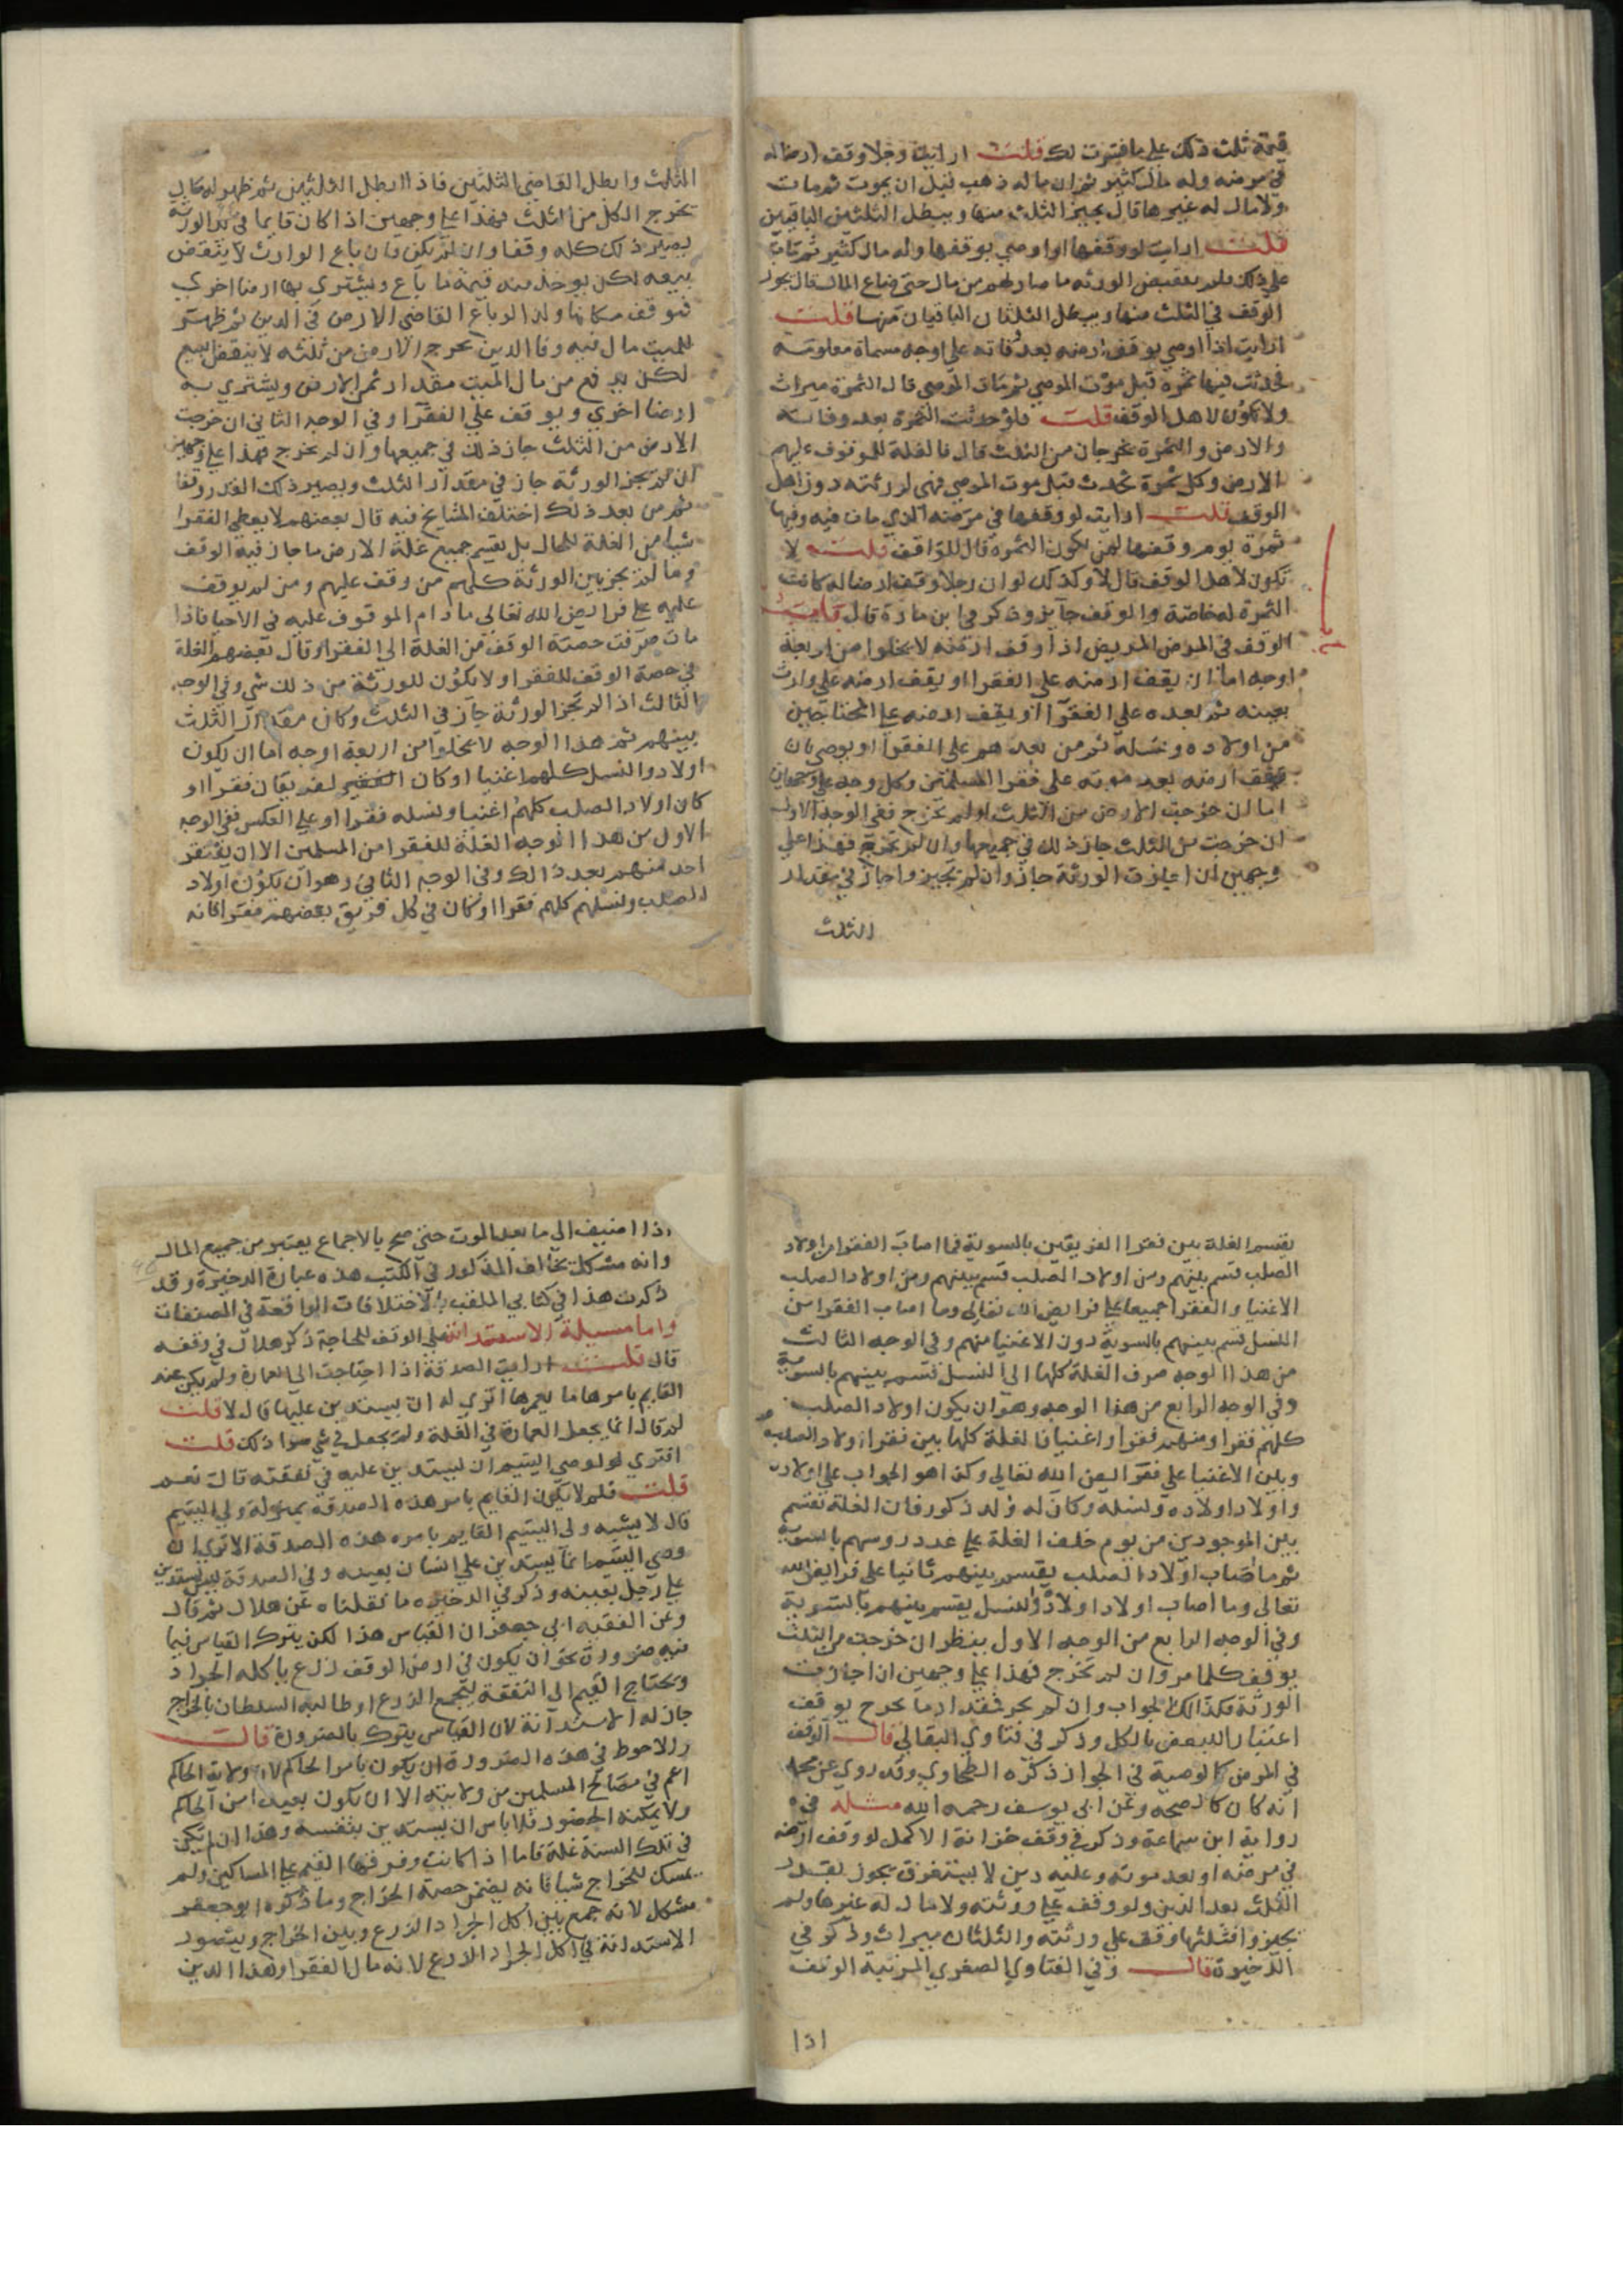 قيمة ثلث ذلك علي ما فسرت لك قلت ارايت رجلا وقف ارضا له
في مرضه وله مال كثير ثم ان ماله ذهب قبل ان يموت ثم مات
ولا مال له غيرها قال يجيز الثلث منها ويبطل الثلثين الباقيين
قلت ارايت لو وقفها او اوصي بوقفها وله مال كثير ثم مات
علي ذلك فلم يقبض الورثه ما صار لهم من مال حتى ضاع المال قال يجوز
الوقف في الثلث منها ويبطل الثلثان الباقيان منها قلت
ارايت اذا اوصي بوقف ارضه بعد وفاته علي اوجه مسماة معلومه
فحدثت فيها ثمرة قبل موت الموصي ثم مات الموصي قال الثمرة ميراث
ولا تكون لاهل الوقف قلت فلو حدثت الثمرة بعد وفاته
والارض والثمرة يخرجان من الثلث قال فالغلة للموقوف عليهم
الارض وكل ثمرة تحدث قبل موت الموصي فهي لورثته دون اهل
الوقف قلت ارايت لو وقفها في مرضه الذي مات فيه وفيها
ثمرة يوم وقفها لمن يكون الثمرة قال للواقف قلت لا
تكون لاهل الوقف قال لا وكذلك لو ان رجلا وقف ارضا له كانت
الثمرة له خاصة والوقف جايز وذكر في ابن مازة قال
الوقف في المرض المريض اذا وقف ارضه لا يخلوا من اربعة
اوجه اما ان يقف ارضه علي الفقرا او يقف ارضه علي وارث
بعينه ثم بعده علي الفقرا او يقف ارضه علي المحتاجين
من اولاده ونسله ثم من بعدهم علي الفقرا او يوصي بان
يوقف ارضه بعد موته علي فقرا المسلمين وكل وجه علي وجهين
اما ان خرجت الارض من الثلث او لم تخرج ففي الوجه الاول
ان خرجت من الثلث جاز ذلك في جميعها وان لم تخرج فهذا علي
وجهين ان اجازت الورثة جاز وان لم تجيز واجاز في مقدار
الثلث
الثلث وابطل القاضي الثلثين فاذا ابطل الثلثين ثم ظهر له مال
يخرج الكل من الثلث فهذا علي وجهين اذا كان قايما في يد الورثة
يصير ذلك كله وقفا وان لم يكن فان باع الوارث لا ينتقض
بيعه لكن يوخذ منه قيمة ما باع ويشتري بها ارضا اخري
فتوقف مكانها ولذا لو باع القاضي الارض في الدين ثم ظهر
للميت مال فيه وفا الدين تخرج الارض من ثلثه لا ينتقض البيع
لكن يدفع من مال الميت مقدار ثمن الارض ويشتري به
ارضا اخري ويوقف علي الفقرا وفي الوجه الثاني ان خرجت
الارض من الثلث جاز ذلك في جميعها وان لم يخرج فهذا علي وجهين
ان لم تجز الورثة جاز في مقدار الثلث ويصير ذلك القدر وقفا
ثم من بعد ذلك اختلف المشايخ فيه قال بعضهم لا يعطي الفقرا
شيا من الغلة للحال بل يقسم جميع غلة الارض ما جاز فيه الوقف
وما لم يجز بين الورثة كلهم من وقف عليهم ومن لم يوقف
عليه علي فرايض الله تعالى ما دام الموقوف عليه في الاحيا فاذا
مات صرفت حصة الوقف من الغلة الى الفقرا وقال بعضهم الغلة
في حصة الوقف للفقرا ولا يكون للورثة من ذلك شي وفي الوجه
الثالث اذا لم تجز الورثة جاز في الثلث وكان مقدار الثلث
بينهم ثم هذا الوجه لا يخلوا من اربعة اوجه اما ان يكون
اولاد والنسل كلهم اغنيا او كان الفقير لفريقان فقرا او
كان اولاد الصلب كلهم اغنيا ونسله فقرا او علي العكس ففي الوجه
الاول من هذا الوجه الغلة للفقرا من المسلمين الا ان يفتقر
احد منهم بعد ذالك وفي الوجه الثاني وهو ان يكون اولاد
الصلب ونسلهم كلهم فقرا او كان في كل فريق بعضهم فقرا فانه
يقسم الغلة بين فقرا الفريقين بالسوية فما اصاب الفقرا من اولاد
الصلب قسم بينهم ومن اولاد الصلب قسم بينهم ومن اولاد الصلب
الاغنيا والفقرا جميعا علي فرايض الله تعالي وما اصاب الفقرا من
النسل قسم بينهم بالسوية دون الاغنيا منهم وفي الوجه الثالث
من هذا الوجه صرف الغلة كلها الي النسل تقسم بينهم بالسوية
وفي الوجه الرابع من هذا الوجه وهو ان يكون اولاد الصلب
كلهم فقرا ومنهم فقرا واغنيا فالغلة كلها بين فقرا اولاد الصلب
وبين الاغنيا علي فقرا يعن الله تعالي وكذا هو الجواب علي اولاده
واولاد اولاده ونسله وكان له ولد ذكور فان الغلة تقسم
بين الموجودين من يوم خلف الغلة علي عدد روسهم بالسوية
ثم ما اصاب اولاد الصلب يقسم بينهم ثانيا علي فرايض الله
تعالى وما اصاب اولاد اولاد والنسل يقسم بينهم بالتسوية
وفي الوجه الرابع من الوجه الاول ينظر ان خرجت من الثلث
يوقف كلما مر وان لم تخرج فهذا علي وجهين ان اجازت
الورثة فكذالك الجواب وان لم يجز فمقدار ما يخرج يوقف
اعتبارا للبعض بالكل وذكر في فتاوي البقالي قال الوقف
في المرض كالوصية في الجواز ذكره الطحاوي وقد روي عن محمد
انه كان كالصحة وعن ابي يوسف رحمه الله مثله في
رواية ابن سماعة وذكر في وقف خزانة الاكمل لو وقف ارضه
في مرضه او بعد موته وعليه دين لا يستغرق يجوز بقدر
الثلث بعد الدين ولو وقف علي ورثته ولا مال له غيرها ولم
يجيزوا فثلثها وقف علي ورثته والثلثان ميراث وذكر في
الذخيرة قال وفي الفتاوي الصغري المرتبة الوقف
اذا
اذا اضيف الي ما بعد الموت حتى صح بالاجماع يعتبر من جميع المال
وانه مشكل يخالف المذكور في الكتب هذه عبارة الذخيرة وقد
ذكرت هذا في كتابي الملقب بالاختلافات الواقعة في المصنفات
واما مسيلة الاستدانة علي الوقف للحاجة ذكر هلال في وقفه
قال قلت ارايت الصدقة اذا احتاجت الي العمارة ولم يكن عند
القايم بامرها ما يعمرها اتري له ان يستدين عليها قال لا قلت
لم قال انما يجعل العمارة في الغلة ولم يجعل في شي سوا ذلك قلت
افتري لو لوصي اليتيم ان ليستدين عليه في نفقته قال نعم
قلت فلم لا يكون القايم بامر هذه الصدقة بمنزلة ولي اليتيم
قال لا يشبه ولي اليتيم القايم بامره هذه الصدقة الا تري ان
وصي اليتيم انما يستدين علي انسان بعينه وفي الصدقة ليس يستدين
علي رجل بعينه وذكر في الذخيرة ما نقلناه عن هلال ثم قال
وعن الفقيه ابي جعفر ان القياس هذا لكن يترك القياس فيما
فيه ضرورة نحو ان يكون في ارض الوقف زرع ياكله الجراد
ويحتاج القيم الى النفقة لجمع الزرع او طالبه السلطان بالخراج
جاز له الاستدانة لان القياس يترك بالضرورة قالت
والاحوط في هذه الضرورة ان يكون بامر الحاكم لان ولاية الحاكم
اعم في مصالح المسلمين من ولايته الا ان يكون بعيدا من الحاكم
ولا يمكنه الحضور فلا باس ان يستدين بنفسه وهذا ان لم تكن
في تلك السنة غلة فاما اذا كانت وفرقها القيم علي المساكين ولم
يمسك للخراج شيا فانه يضمن حصة الخراج وما ذكره ابو جعفر
مشكل لانه جمع بين اكل الجراد الزرع وبين الخراج ويتصور
الاستدانة في اكل الجراد الزرع لانه مال الفقرا وهذا الدين